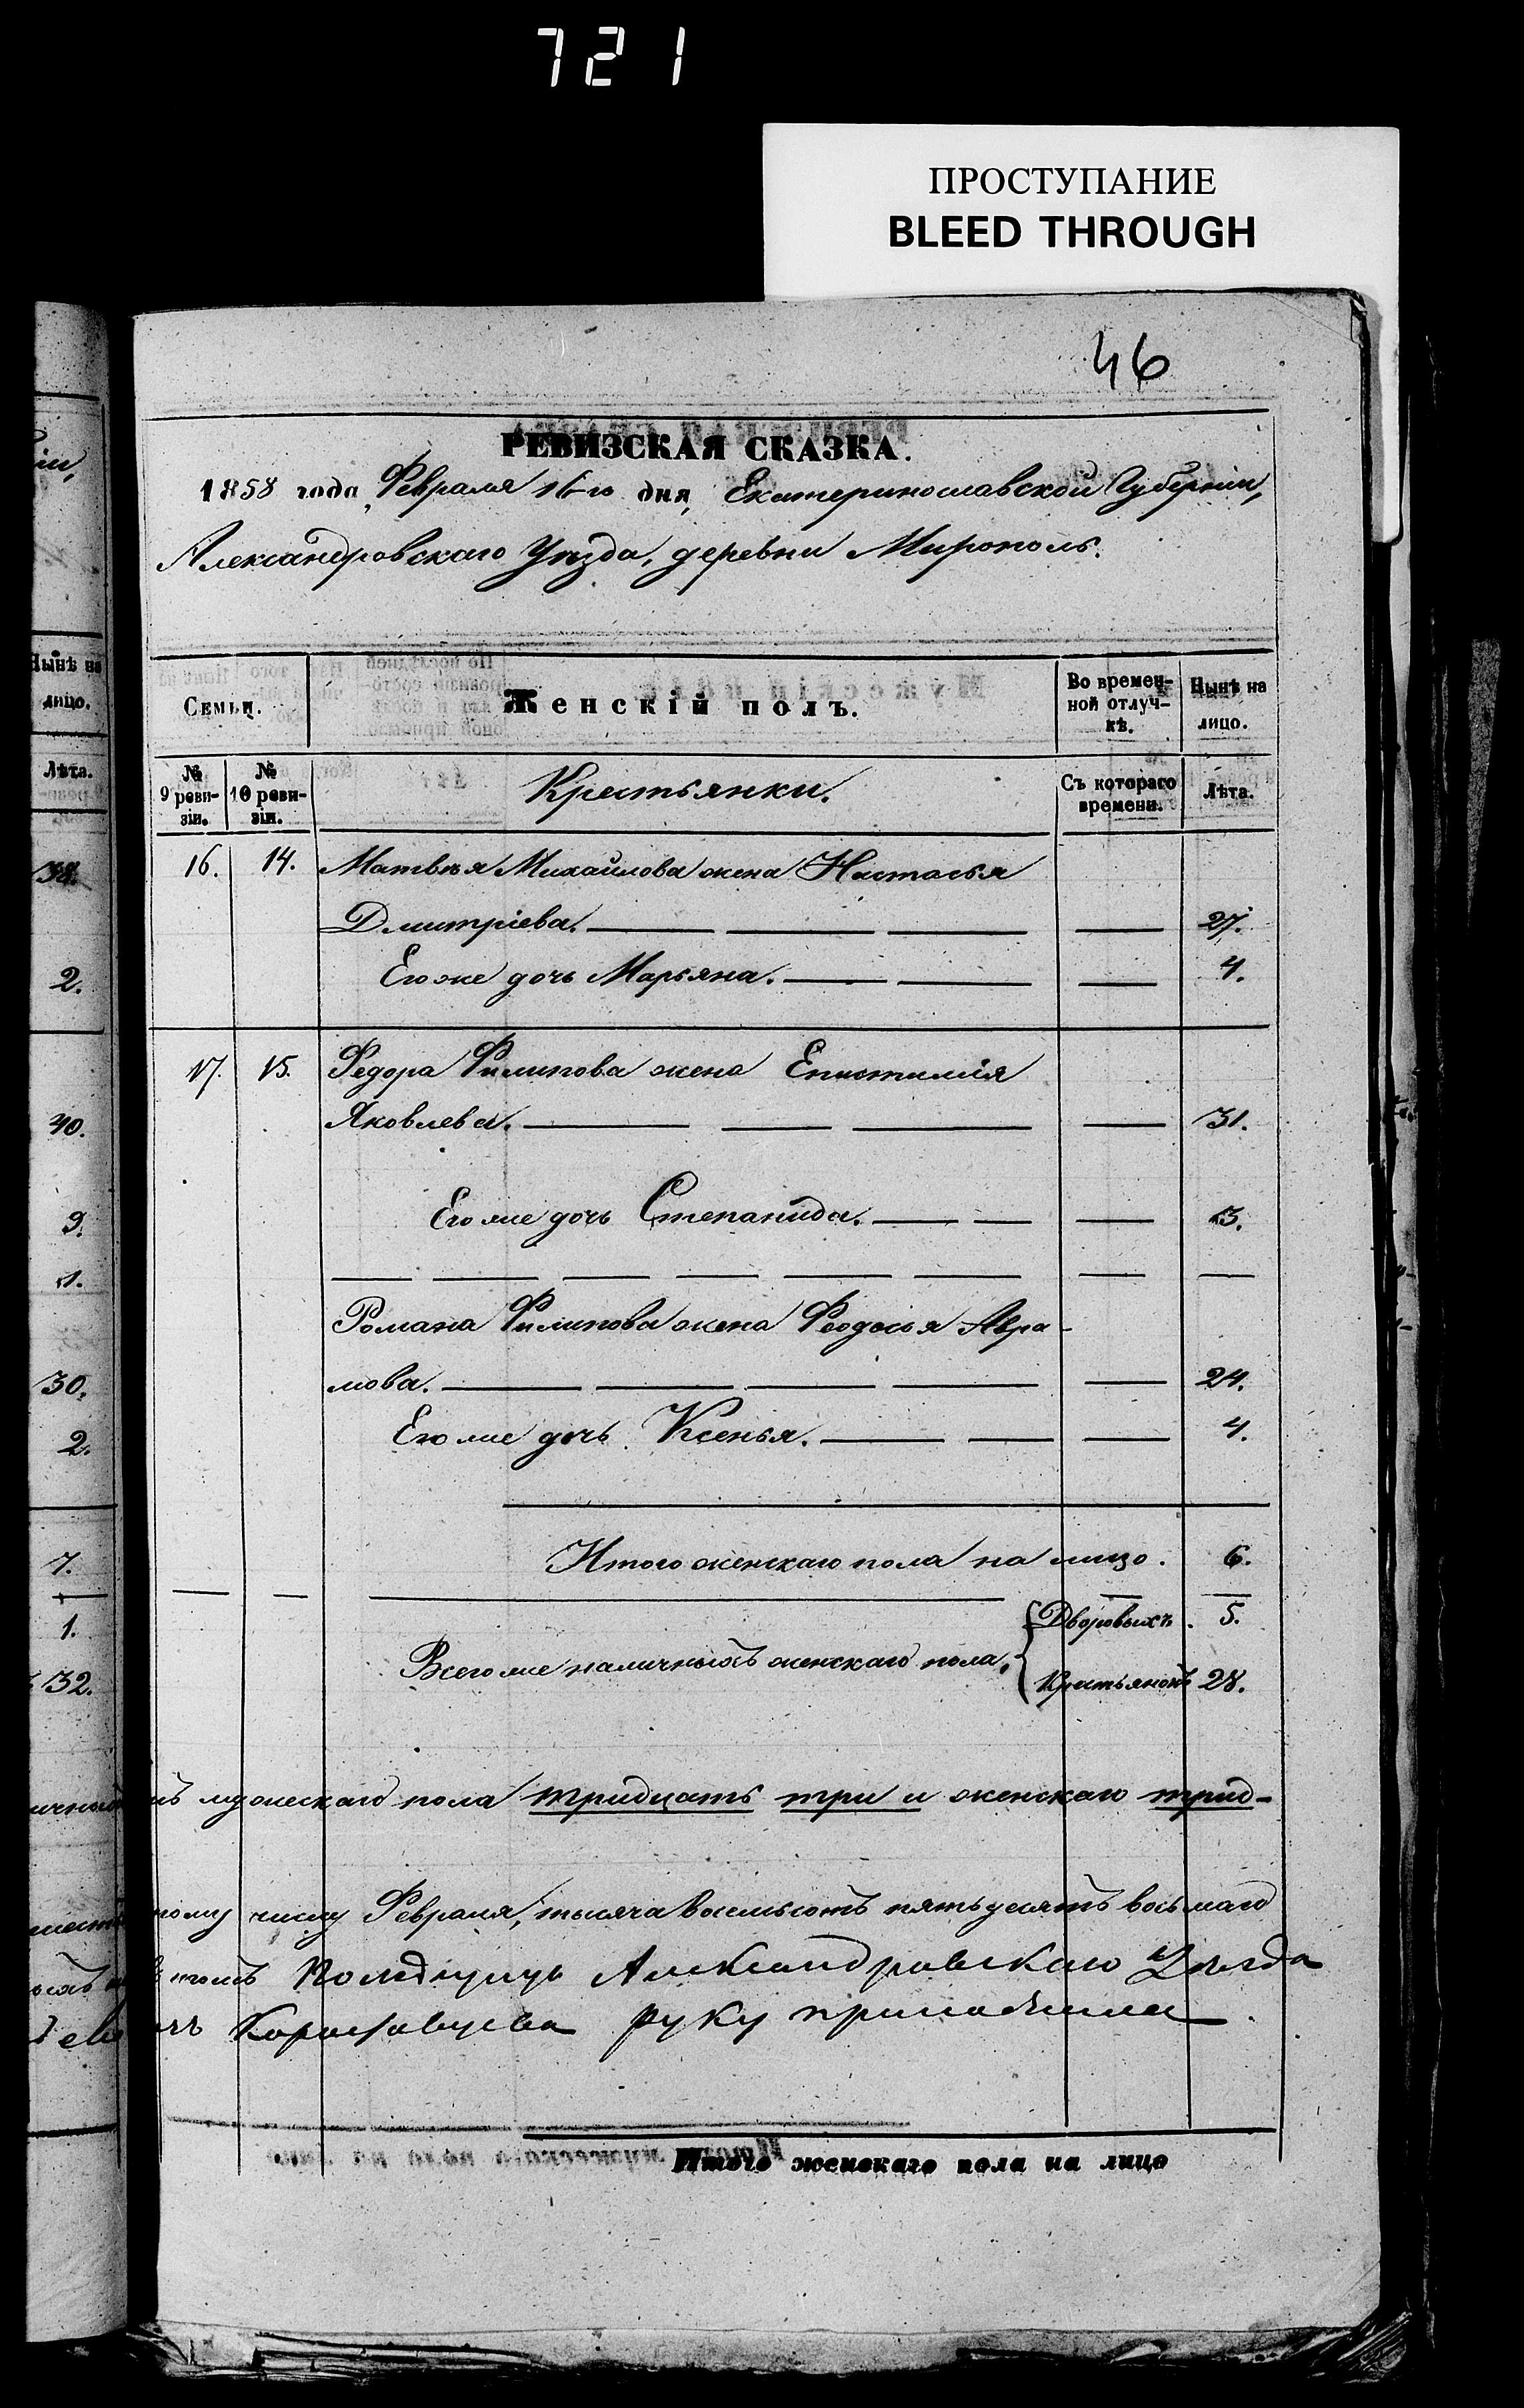 721
ПРОСТУПАНИЕ
BLEED THROUGH
46
РЕВИЗСКАЯ СКАЗКА.
1858 года Февраля 16го дня, Екатеринославской Губерніи,
Александровскаго Уѣзда, деревни Мирополь.
Нынѣ на
лицо.
Лѣта.
Семьи.
Женскій полъ.
Во времен-
ной отлуч-
кѣ.
Нынѣ на
лицо.
№
9 реви-
зіи.
№
10 реви-
зіи.
Крестьянки.
Съ котораго
времени.
Лѣта.
16. 14. Матвѣя Михайлова жена Настасья
Дмитріева. 27.
Его же дочь Марьяна. 4.
2.
17. 15. Федора Филипова жена Епистимія
Яковлева. 31.
40.
Его же дочь Степанида. 3.
9.
1.
Романа Филипова жена Феодосья Авра-
мова. 24.
30.
Его же дочь Ксенья. 4.
2.
Итого женскаго пола на лицо. 6.
7.
Всего же наличныхъ женскаго пола,
Дворовыхъ. 5.
Крестьянокъ 28.
1.
32.
мужескаго пола тридцать три и женскаго трид-
числу Февраля, тысяча восемьсотъ пятьдесятъ восьмаго
Александровскаго Уѣзда
руку приложила
Итого женскаго пола на лицо